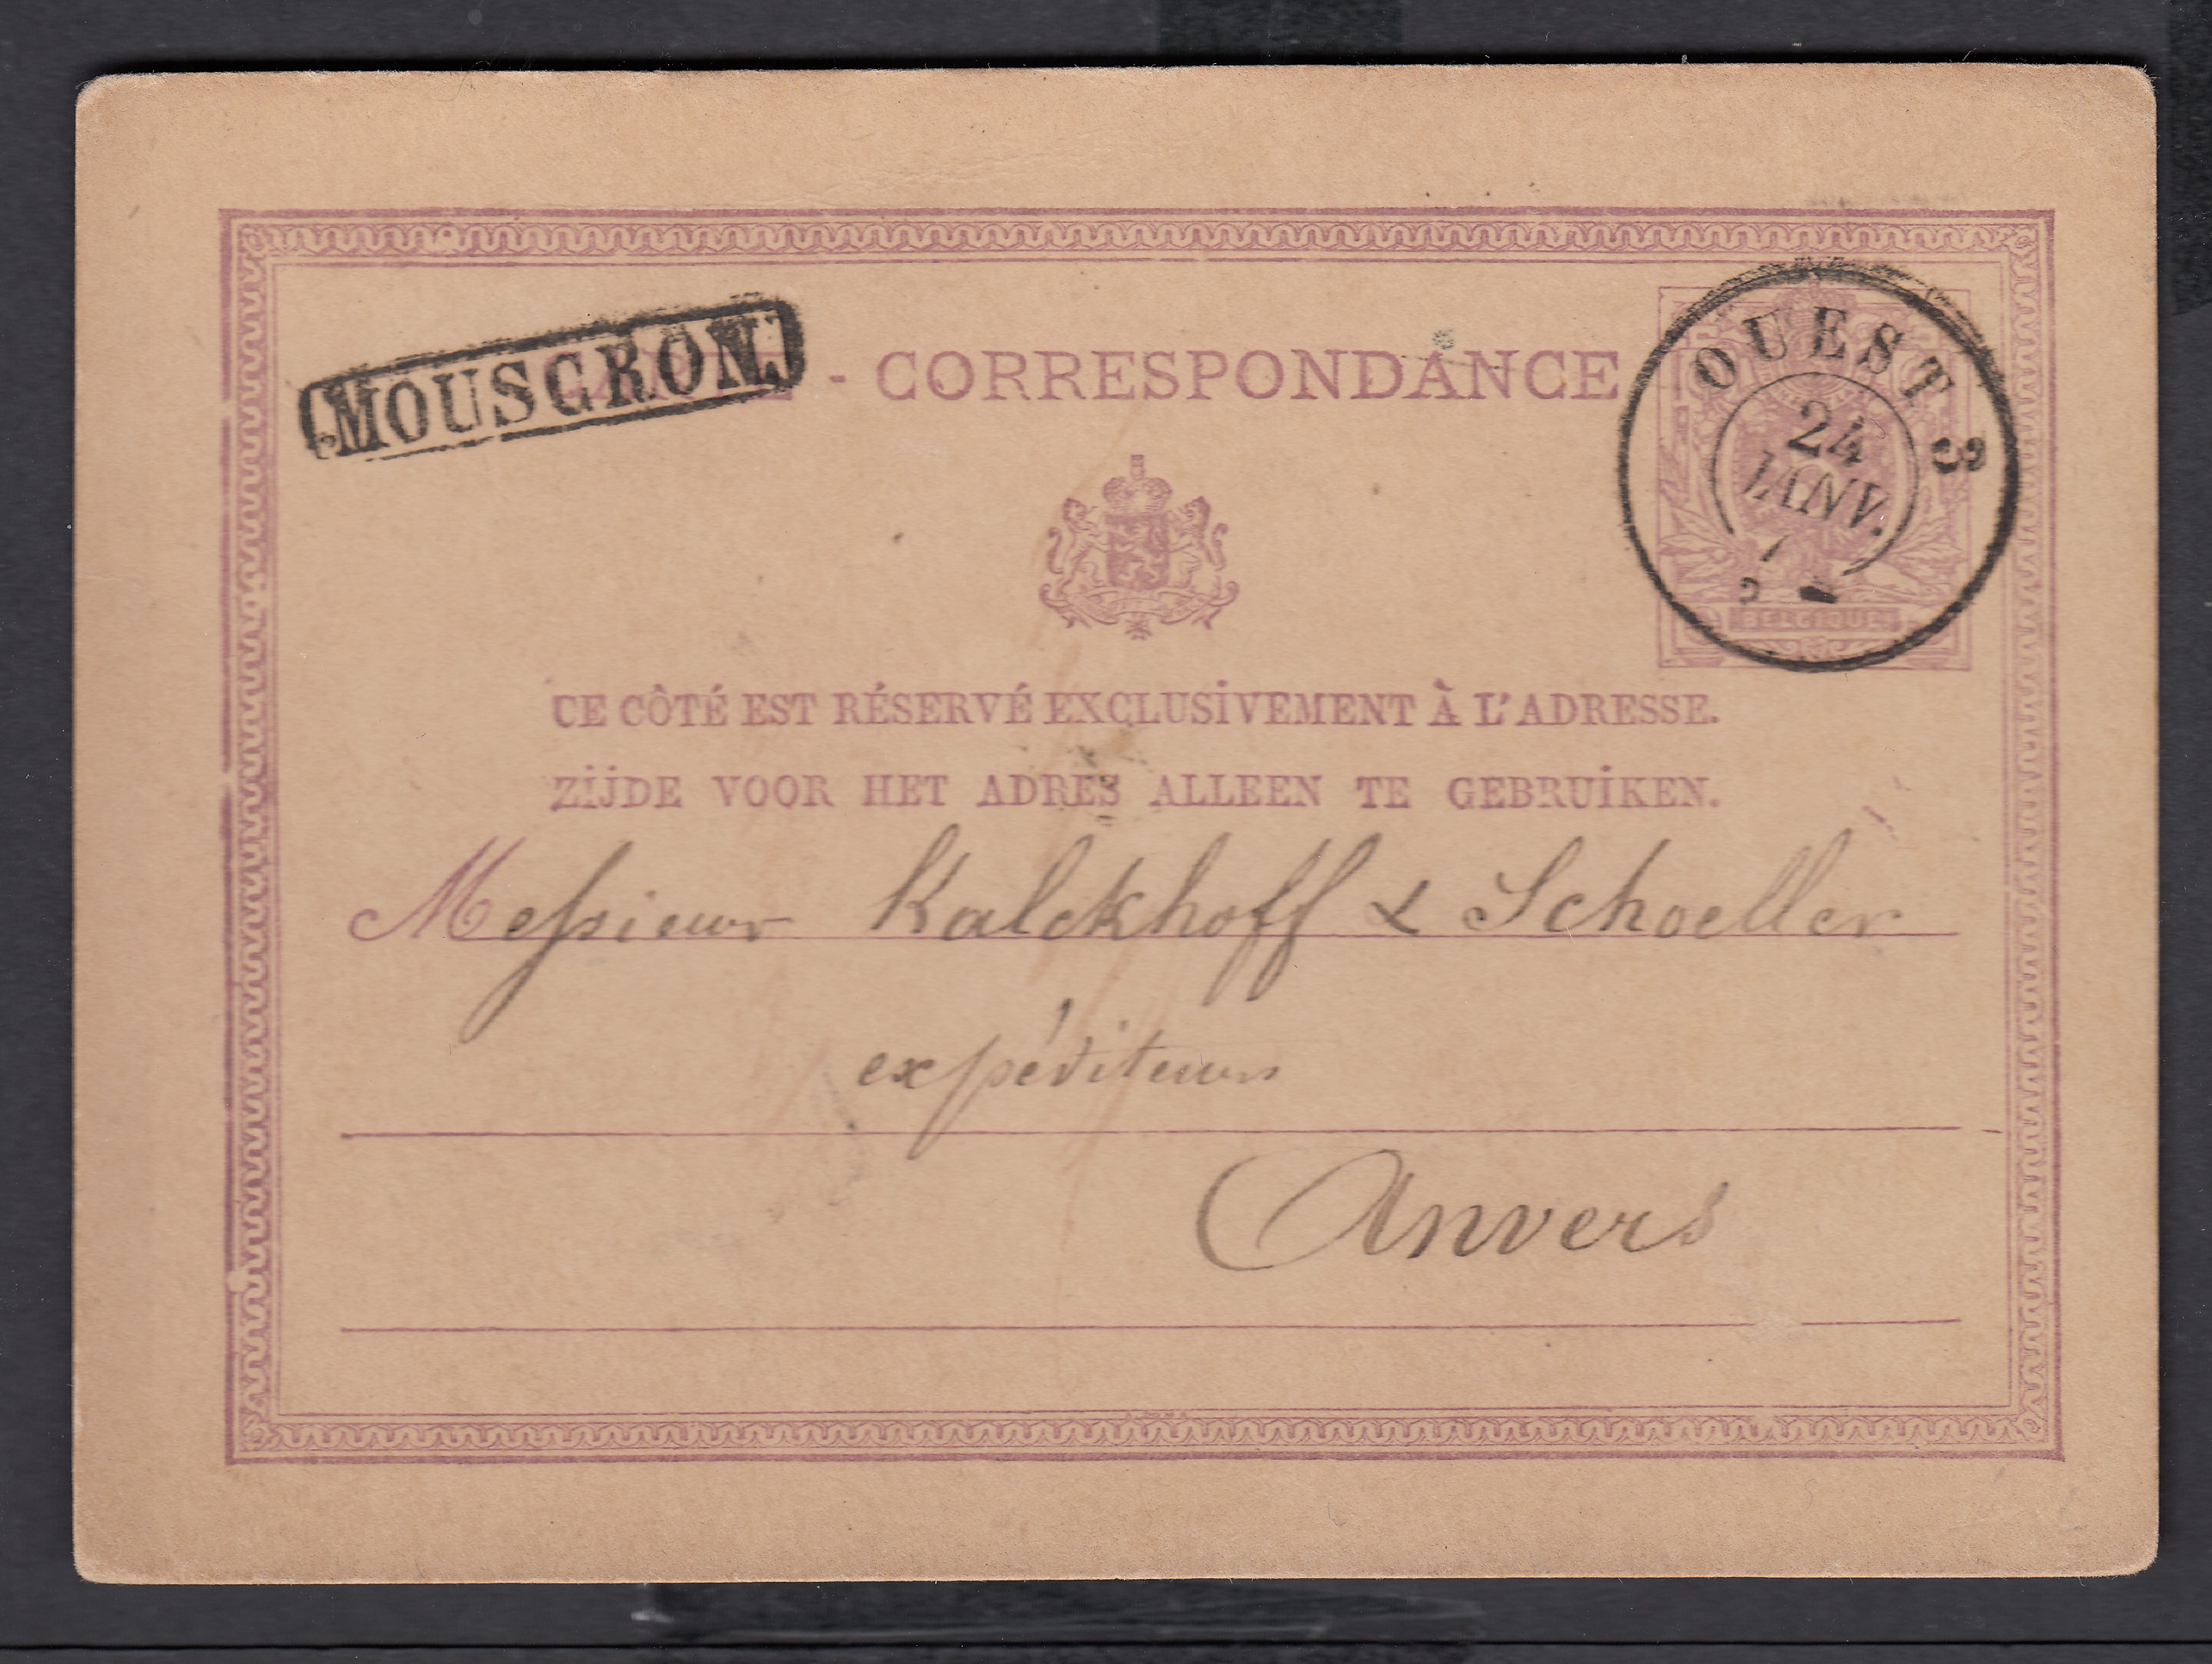 MOUSCRON.
- CORRESPONDANCE
OUEST 3
24
JANV.
7
BELGIQUE
CE CÔTÉ EST RÉSERVÉ EXCLUSIVEMENT À L'ADRESSE.
ZIJDE VOOR HET ADRES ALLEEN TE GEBRUIKEN.
Messieurs Kalckhoff & Schoeller
expéditeurs
Anvers